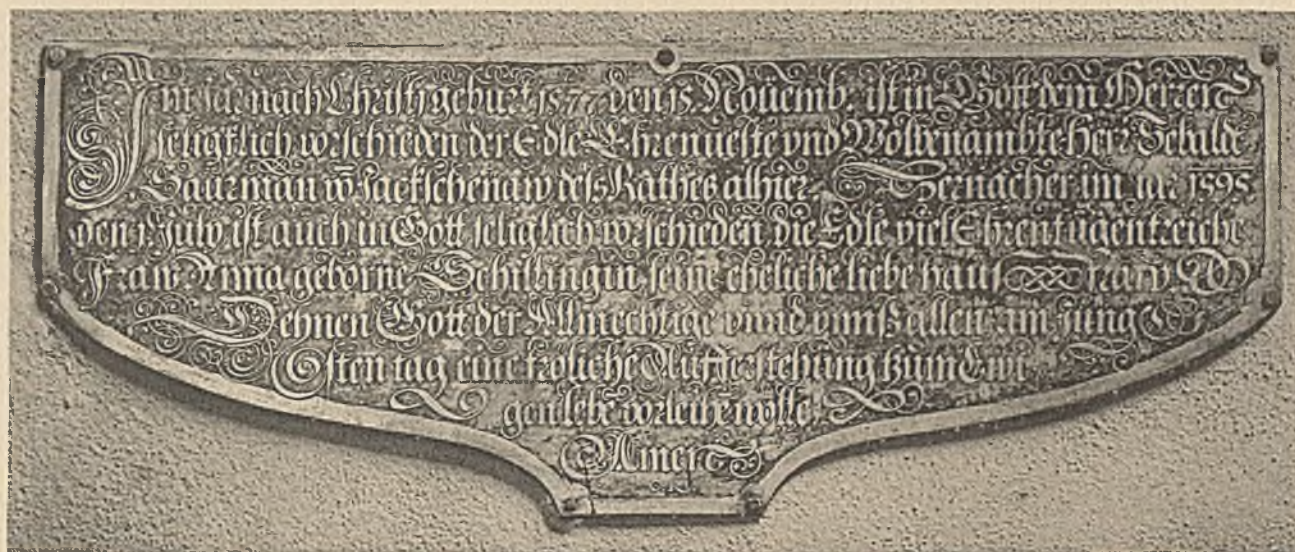 Im jar nach Christj geburt 1577 den 15 Nouemb. ist in Gott dem Herren
seligklich vorschieden der Edle Ehrnueste vnd Wolbenambte Herr Sebalde
Saurman vō Jackschenaw deſs Rathes alhier. Hernacher im jar 1595
den 1 July ist auch in Gott seliglich vorschieden die Edle viel Ehrentugentreiche
Fraw Anna geborne Schillingin seine eheliche liebe hausfraw
Dehnen Gott der Allmechtige vnnd vnnß allen am Jung
Esten tag eine froliche Aufferstehung zum Ewi
gen lebē vorleihē wolle.
Amen